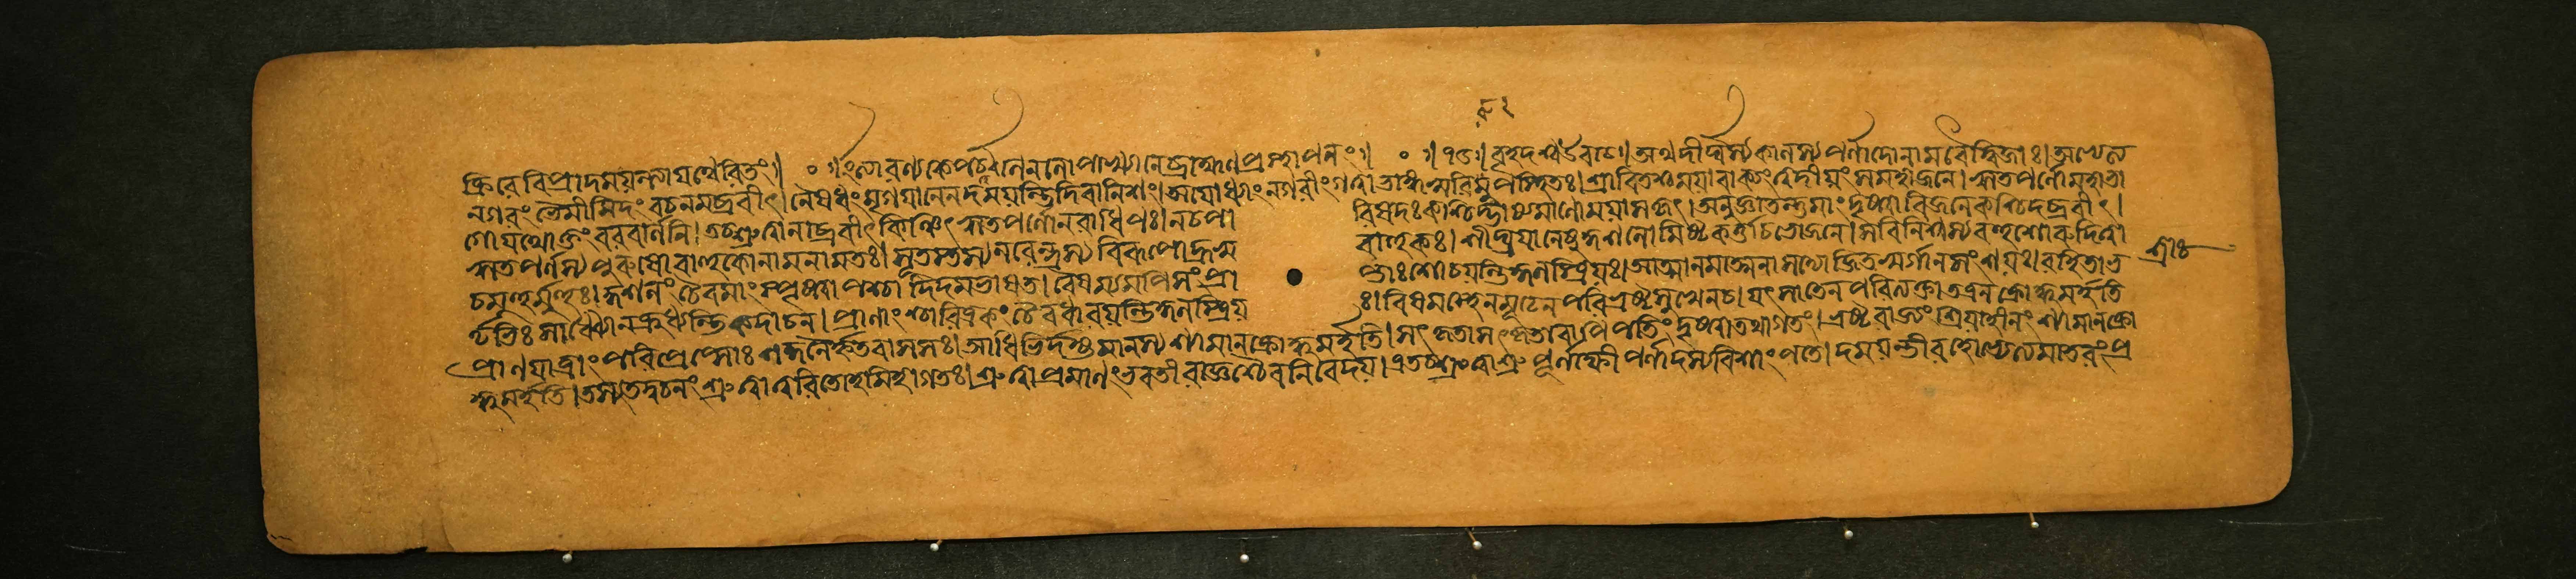 ক্রিরে বিপ্রা দময়ন্ত্যা যথেরিতং॥ ০ ॥ ইত্যারণ্যকে পর্ব্বণি নলোপাখ্যানে ব্রাহ্মণপ্রস্থাপনং॥ ০ ॥ ১৫॥ বৃহদশ্ব উবাচ॥ অথ দীর্ঘস্য কালস্য পর্ণাদো নাম বৈ দ্বিজঃ। প্রত্যেত্য
নগরং ভৈমীমিদং বচনমব্রবীৎ। নৈষধং মৃগয়ানেন দময়ন্তি দিবানিশং। অযোধ্যাং নগরীং গত্বা ভাঙ্গাস্বরিমুপস্থিতঃ। শ্রাবিতশ্চ ময়া বাক্যং ত্বদীয়ং স মহাজনে। ঋতপর্ণো মহাভা
গো যথোক্তং বরবর্ণিনি। তচ্ছ্রুত্বা নাব্রবীৎ কিঞ্চিৎ ঋতপর্ণো নরাধিপঃ। ন চ পারিষদঃ কশ্চিদ্ভাষ্যমাণো ময়াসকৃৎ। অনুজ্ঞাতন্তু মাং দৃষ্ট্বা বিজনে কশ্চিদব্রবীৎ।
ঋতপর্ণস্য পুরুষো বাহুকো নাম নামতঃ। সূতস্তস্য নরেন্দ্রস্য বিরূপো হ্রস্ববাহুকঃ। শীঘ্রযানেষু কুশলো মিষ্টকর্ত্তা চ ভোজনে। স বিনিশ্বস্য বহুশো রুদিত্বা
চ মুহুর্মুহুঃ। কুশলং চৈব মাং পৃষ্ট্বা পশ্চাদিদমভাষত। বৈষম্যমপি সংপ্রাপ্তাঃ গোপায়ন্তি কুলস্ত্রিয়ঃ। আত্মানমাত্মনা সত্যো জিতস্বর্গা ন সংশয়ঃ। রহিতা ভ
র্তৃভিঃ সাধ্ব্যো ন ক্রুধ্যন্তি কদাচন। প্রাণাংশ্চারিত্রকং চৈব ধারয়ন্তি কুলস্ত্রিয়ঃ। বিষমস্থেন মূঢেন পরিভ্রষ্টসুখেন চ। যৎ সা তেন পরিত্যক্তা তত্র ন ক্রোদ্ধুমর্হতি
প্রাণযাত্রাং পরিপ্রেপ্সোঃ শকুনৈর্হৃতবাসসঃ। আধিভির্দহ্যমানস্য শ্যামা ন ক্রোদ্ধুমর্হতি। সৎকৃতাসৎকৃতা বাপি পতিং দৃষ্ট্বা তথাগতং। ভ্রষ্টরাজ্যং শ্রিয়া হীনং শ্যামা ন ক্রো
দ্ধুমর্হতি। তস্য তদ্বচনং শ্রুত্বা ত্বরিতোহমিহাগতঃ। শ্রুত্বা প্রমাণং ভবতী রাজ্ঞশ্চৈব নিবেদয়। এতচ্ছ্রুত্বাশ্রুপূর্ণাক্ষী পর্ণাদস্য বিশাং পতে। দময়ন্তী রহোভ্যেত্য মাতরং প্র
শ্রীঃ